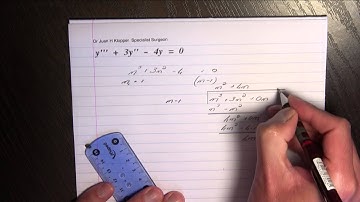 Dr Juan H Klopper Specialist Surgeon
y''' + 3y'' - 4y = 0
m³ + 3m² - 4 = 0
m = 1 (m-1)
m² + 4m
m-1 m³ + 3m² + 0m
m³ - m²
4m² + 0m